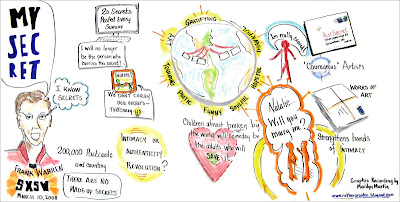 MY
SECRET
I KNOW
SECRETS
FRANK WARREN
SXSW
MARCH 10, 2008
20 Secrets
Posted Every
Sunday
I will no longer
be the person who
carries the most!
SECRETS!
WE DON'T CARRY
OUR SECRETS -
THEY CARRY US
200,000 Postcards
and counting
THERE ARE NO
MADE UP SECRETS
INTIMACY OR
AUTHENTICITY
REVOLUTION?
ART
GRATIFYING
FUNNY
Children almost broken by
the world will someday be
the adults who will
SAVE it!
I'm really sexual!
"Courageous" Artists
WORKS OF
ART
Natalie,
Will you
marry me?
Strengthens bonds
of intimacy
Graphic Recording by
Marilyn Martin